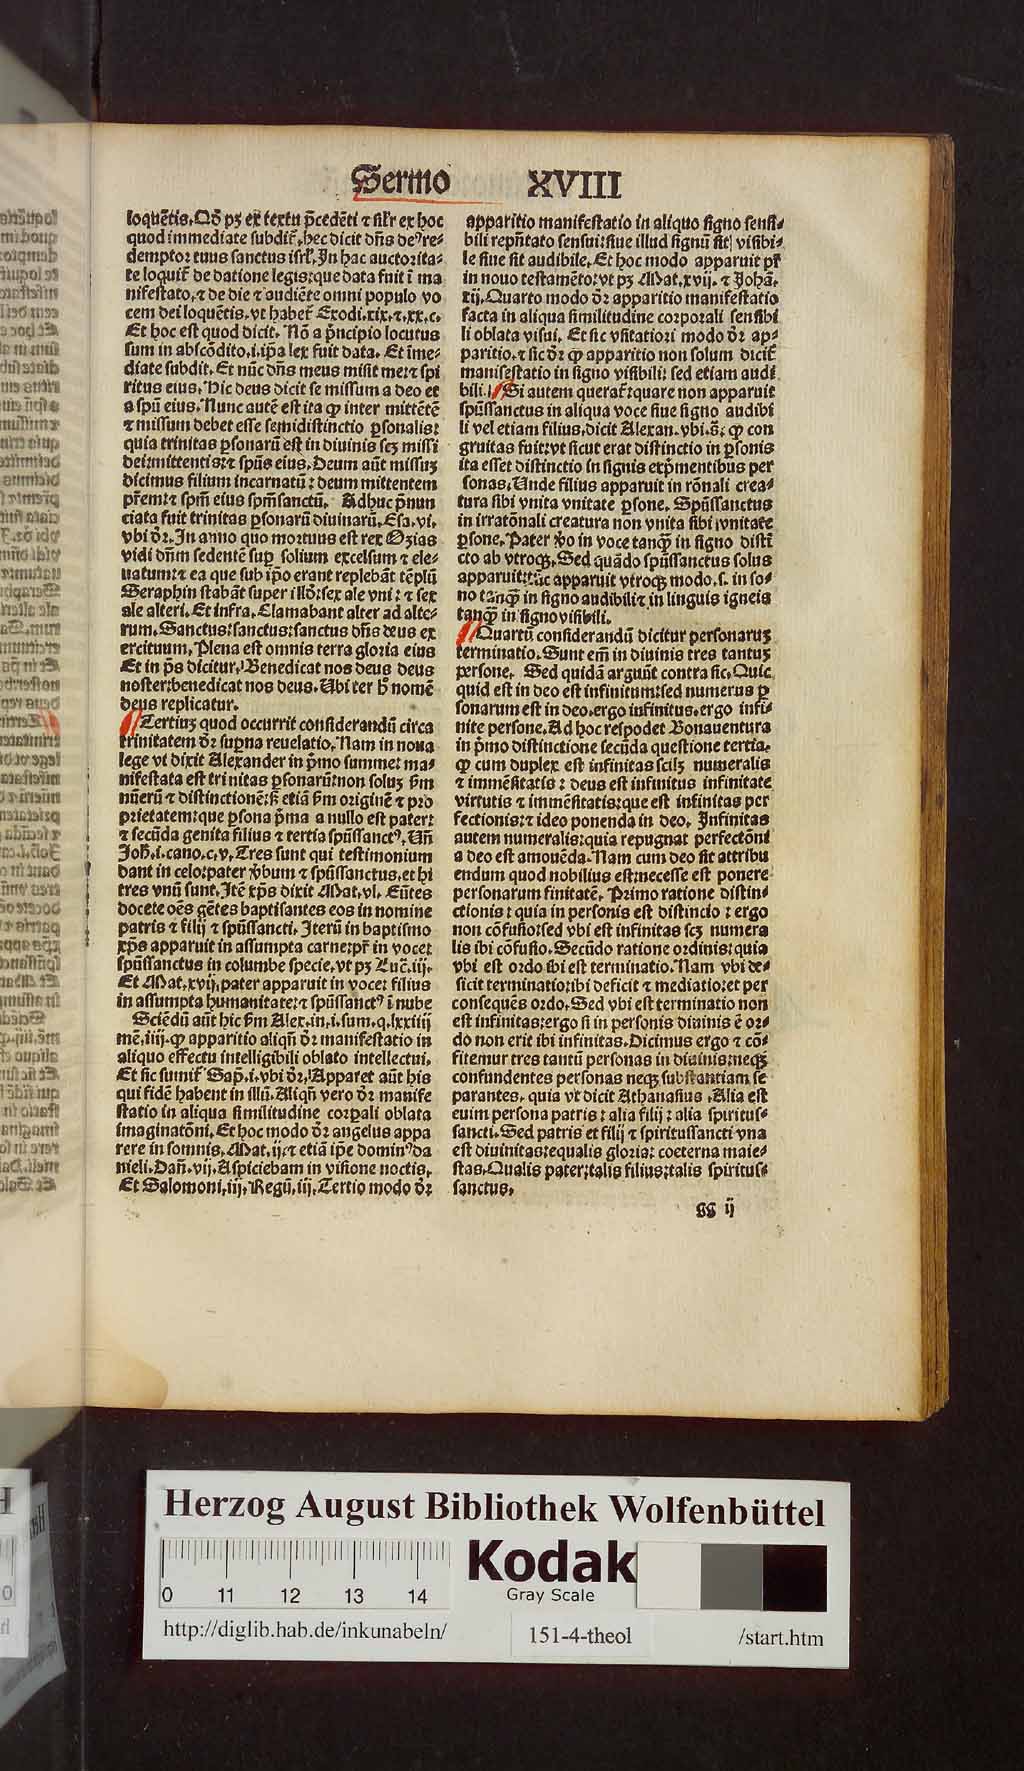 Sermo XVIII
loquētis. Qđ pꝫ ex textu p̄cedēti ⁊ silr̄ ex hoc
quod immediate subdit᷑, hec dicit dn̄s deꝰ re⸗
demptor tuus sanctus isrl̄. In hac auctorita⸗
te loquit᷑ de datione legis: que data fuit ī ma
nifestato, ⁊ de die ⁊ audiēte omni populo vo
cem dei loquētis, vt habet᷑ Exodi. xix. ⁊. xx. c.
Et hoc est quod dicit. Nō a p̄ncipio locutus
sum in abscōdito. i. ip̄a lex fuit data. Et īme⸗
diate subdit. Et nūc dn̄s meus misit me: ⁊ spi
ritus eius. Hic deus dicit se missum a deo et
a spū eius. Nunc autē est ita ꝙ inter mittētē
⁊ missum debet esse semidistinctio ꝑsonalis:
quia trinitas ꝑsonarū est in diuinis scꝫ missi
dei: mittentis: ⁊ spūs eius. Deum aūt missuꝫ
dicimus filium incarnatū: deum mittentem
pr̄em: ⁊ spm̄ eius spm̄sanctū. Adhuc p̄nun
ciata fuit trinitas ꝑsonarū diuinarū. Esa. vi.
vbi dr̄. In anno quo mortuus est rex Ozias
vidi dn̄m sedentē suꝑ solium excelsum ⁊ ele⸗
uatum: ⁊ ea que sub ip̄o erant replebāt tēplū
Seraphin stabāt super illđ: sex ale vni: ⁊ sex
ale alteri. Et infra. Clamabant alter ad alte⸗
rum. Sanctus: sanctus: sanctus dn̄s deus ex
ercituum. Plena est omnis terra gloria eius
Et in p̄s dicitur. Benedicat nos deus deus
noster: benedicat nos deus. Ubi ter h̄ nomē
deus replicatur.
Tertiuꝫ quod occurrit considerandū circa
trinitatem dr̄ supna reuelatio. Nam in noua
lege vt dixit Alexander in p̄mo summe: ma⸗
nifestata est trinitas ꝑsonarū: non soluꝫ s̄m
nūerū ⁊ distinctionē: sꝫ etiā s̄m originē ⁊ pro
prietatem: que ꝑsona p̄ma a nullo est pater:
⁊ secūda genita filius ⁊ tertia spūssanctꝰ. Un̄
Joh̄. i. cano. c. v. Tres sunt qui testimonium
dant in celo: pater v̄bum ⁊ spūssanctus, et hi
tres vnū sunt. Itē xp̄s dixit Mat. vl. Eūtes
docete oēs gētes baptisantes eos in nomine
patris ⁊ filij ⁊ spūssancti. Iterū in baptismo
xp̄s apparuit in assumpta carne: pr̄ in voce:
spūssanctus in columbe specie, vt pꝫ Luc̄. iij.
Et Mat. xvij. pater apparuit in voce: filius
in assumpta humanitate: ⁊ spūssanctꝰ ī nube
Sciēdū aūt hic s̄m Alex. in. i. sum. q. lxxiiij
mē. iiij. ꝙ apparitio aliqn̄ dr̄ manifestatio in
aliquo effectu intelligibili oblato intellectui.
Et sic sumit᷑ Sap̄. i. vbi dr̄. Apparet aūt his
qui fidē habent in illū. Aliqn̄ vero dr̄ manife
statio in aliqua similitudine corꝑali oblata
imaginatōni. Et hoc modo dr̄ angelus appa
rere in somnis. Mat. ij. ⁊ etiā ip̄e dominꝰ da
nieli. Dan̄. vij. Aspiciebam in visione noctis.
Et Salomoni. iij. Regū. iij. Tertio modo dr̄:
apparitio manifestatio in aliquo signo sensi⸗
bili rep̄ntato sensui: siue illud signū sit visibi⸗
le siue sit audibile. Et hoc modo apparuit pr̄
in nouo testamēto: vt pꝫ Mat. xvij. ⁊ Johā.
xij. Quarto modo dr̄: apparitio manifestatio
facta in aliqua similitudine corporali sensibi
li oblata visui. Et sic vsitatiori modo dr̄ ap⸗
paritio, ⁊ sic dr̄ ꝙ apparitio non solum dicit᷑
manifestatio in signo visibili: sed etiam audi
bili. Si autem querat᷑: quare non apparuit
spūssanctus in aliqua voce siue signo audibi
li vel etiam filius, dicit Alexan. vbi. s̄. ꝙ con
gruitas fuit: vt sicut erat distinctio in ꝑsonis
ita esset distinctio in signis exp̄mentibus per
sonas. Unde filius apparuit in rōnali crea⸗
tura sibi vnita vnitate ꝑsone. Spūssanctus
in irratōnali creatura non vnita sibi vnitate
ꝑsone. Pater v̄o in voce tanꝙ̄ in signo distī
cto ab vtroqꝫ. Sed quādo spūssanctus solus
apparuit: tūc apparuit vtroqꝫ modo. s. in so⸗
no tanꝙ̄ in signo audibili ⁊ in linguis igneis
tanꝙ̄ in signo visibili.
Quartū considerandū dicitur personaruꝫ
terminatio. Sunt em̄ in diuinis tres tantuꝫ
persone. Sed quidā arguūt contra sic. Quic
quid est in deo est infinitum: sed numerus ꝑ
sonarum est in deo. ergo infinitus. ergo infi⸗
nite persone. Ad hoc respōdet Bonauentura
in p̄mo distinctione secūda questione tertia.
ꝙ cum duplex est infinitas scilꝫ numeralis
⁊ immēsitatis: deus est infinitus infinitate
virtutis ⁊ immēsitatis: que est infinitas per
fectionis: ⁊ ideo ponenda in deo. Infinitas
autem numeralis: quia repugnat perfectōni
a deo est amouēda. Nam cum deo sit attribu
endum quod nobilius est: necesse est ponere
personarum finitatē. Primo ratione distin⸗
ctionis: quia in personis est distinctio: ergo
non cōfusio: sed vbi est infinitas scꝫ numera
lis ibi cōfusio. Secūdo ratione ordinis: quia
vbi est ordo ibi est terminatio. Nam vbi de⸗
ficit terminatio: ibi deficit ⁊ mediatio: et per
consequēs ordo. Sed vbi est terminatio non
est infinitas: ergo si in personis diuinis ē or⸗
do non erit ibi infinitas. Dicimus ergo ⁊ cō⸗
fitemur tres tantū personas in diuinis: neqꝫ
confundentes personas neqꝫ substantiam se
parantes. quia vt dicit Athanasius. Alia est
euim persona patris: alia filij: alia spiritus⸗
sancti. Sed patris et filij ⁊ spiritussancti vna
est diuinitas: equalis gloria: coeterna maie⸗
stas. Qualis pater: talis filius: talis spiritus⸗
sanctus.
gg ij
Herzog August Bibliothek Wolfenbüttel
0 11 12 13 14
Kodak
Gray Scale
http://diglib.hab.de/inkunabeln/
151-4-theol
/start.htm